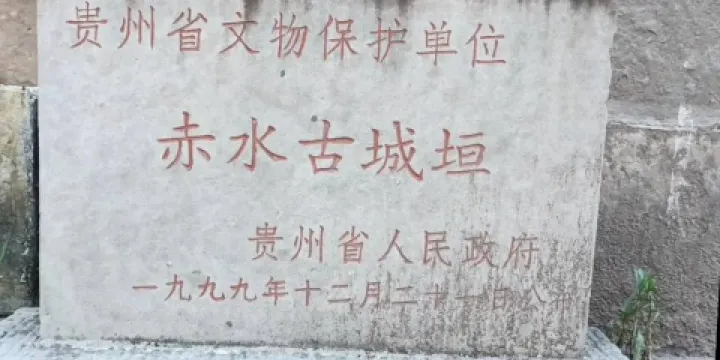 贵州省文物保护单位
赤水古城垣
贵州省人民政府
一九九九年十二月二十一日公布